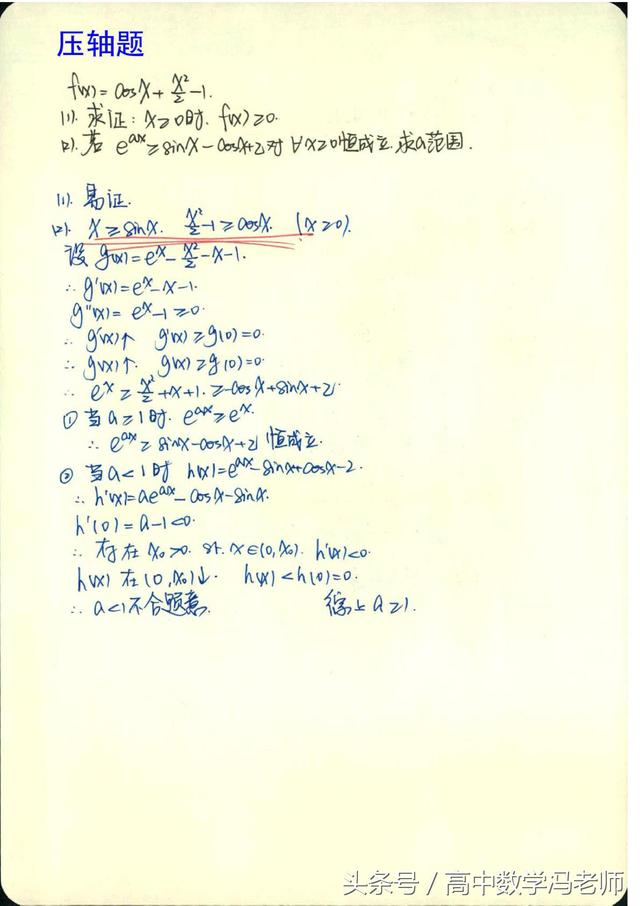 压轴题
f(x)=cosx+x²/2-1.
(1). 求证：x≥0时. f(x)≥0.
(2). 若 e^{ax}≥sinx-cosx+2对∀x≥0恒成立.求a范围.
(1). 易证.
(2). x≥sinx. x²/2-1≥cosx. (x≥0).
设 g(x)=e^x-x²/2-x-1.
∴ g'(x)=e^x-x-1.
g''(x)=e^x-1≥0.
∴ g'(x)↑ g'(x)≥g(0)=0.
∴ g(x)↑. g(x)≥g(0)=0.
∴ e^x≥x²/2+x+1.≥-cosx+sinx+2.
① 当a≥1时. e^{ax}≥e^x.
∴ e^{ax}≥sinx-cosx+2恒成立.
② 当a<1时 h(x)=e^{ax}-sinx+cosx-2.
∴ h'(x)=ae^{ax}-cosx-sinx.
h'(0)=a-1<0.
∴ 存在x₀>0. st. x∈(0,x₀). h'(x)<0.
h(x)在(0,x₀)↓. h(x)<h(0)=0.
∴ a<1不合题意. 综上a≥1.
头条号 / 高中数学冯老师